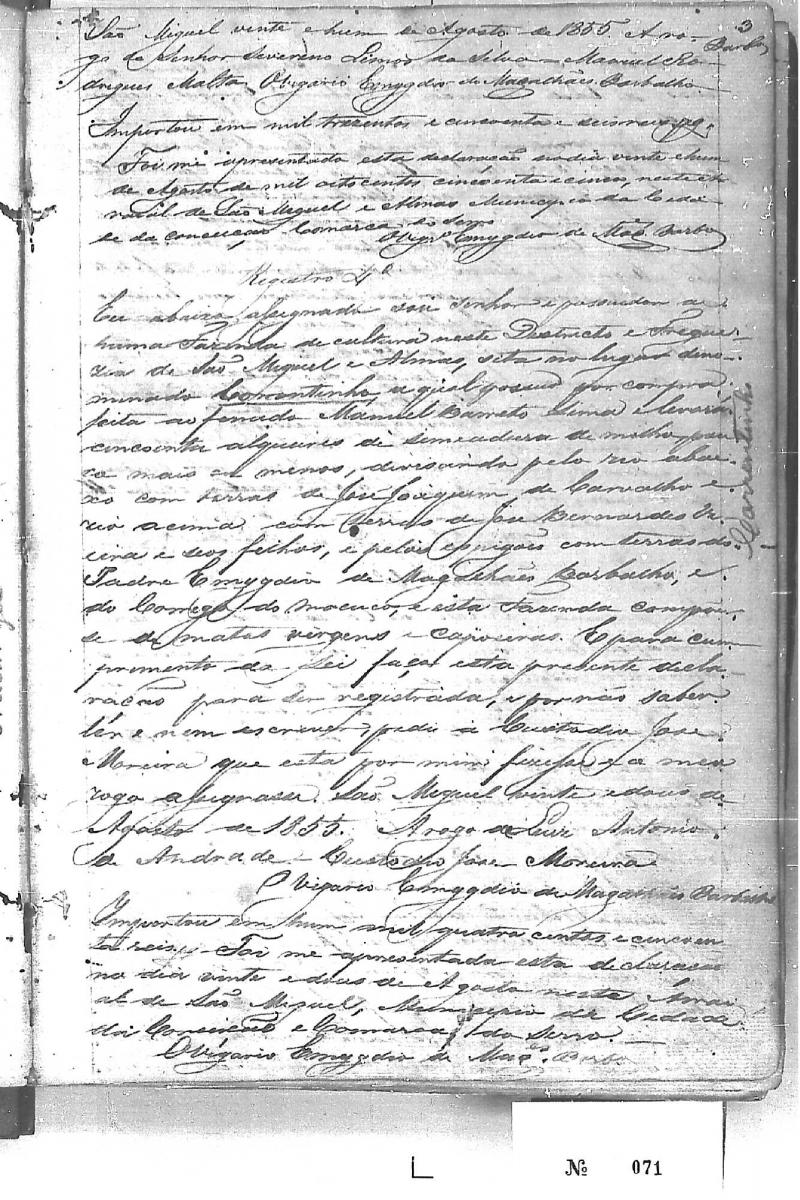 3
Barbo
São Miguel vinte e hum de Agosto de 1855. A ro-
go de Senhor Severeno Lemos da Silva - Manuel Ro-
drigues Malta. O Vigario Emygdio de Magalhães Barbalho
Importou em mil trezentos e cincoenta e seis reis
Foi me apresentada esta declaração no dia vinte e hum
de Agosto de mil oitocentos cincoenta e cinco, neste Ar-
raial de São Miguel e Almas Municipio da Cida-
de da Conceição Comarca do Serro
O Vigrº Emygdio de Magª Barbº
Registro 4º
Eu abaixo assignado sou Senhor e possuidor de
huma Fazenda de cultura neste Destricto e Fregue-
zia de São Miguel e Almas, sita no lugar deno-
minado Correntinho, a qual possuo por compra
feita ao fenado Manuel Barreto Lima e levará
cincoenta alqueires de simeadura de milho, pou-
co mais ou menos, devisando pelo rio abai-
xo com terras de José Joaquim de Carvalho e
rio acima com terras de Jose Bernardes Vi-
eira e seos felhos, e pelos espigões com terras do
Padre Emygdio de Magalhães Barbalho, e
do Corrego do macuco, e esta Fazenda compoe-
se de matas virgens e capoeiras. E para cum-
primento da Lei faço esta presente decla-
ração para ser registrada, e por não saber
lêr e nem escrever pedi a Custodio Jose
Moreira que esta por mim fizesse e a meu
rogo assignasse. São Miguel vinte e dous de
Agosto de 1855. A rogo de Luiz Antonio
de Andrade - Custodio Jose Moreira
O Vigario Emygdio de Magalhães Barbalho
Importou em hum mil quatro centos e cincoen
ta reis. Foi me apresentada esta declaração
no dia vinte e dous de Agosto neste Arrai
al de São Miguel, Municipio da Cidade
da Conceição e Comarca do Serro.
O Vigario Emygdio de Magª Barbº
Correntinho
Nº 071